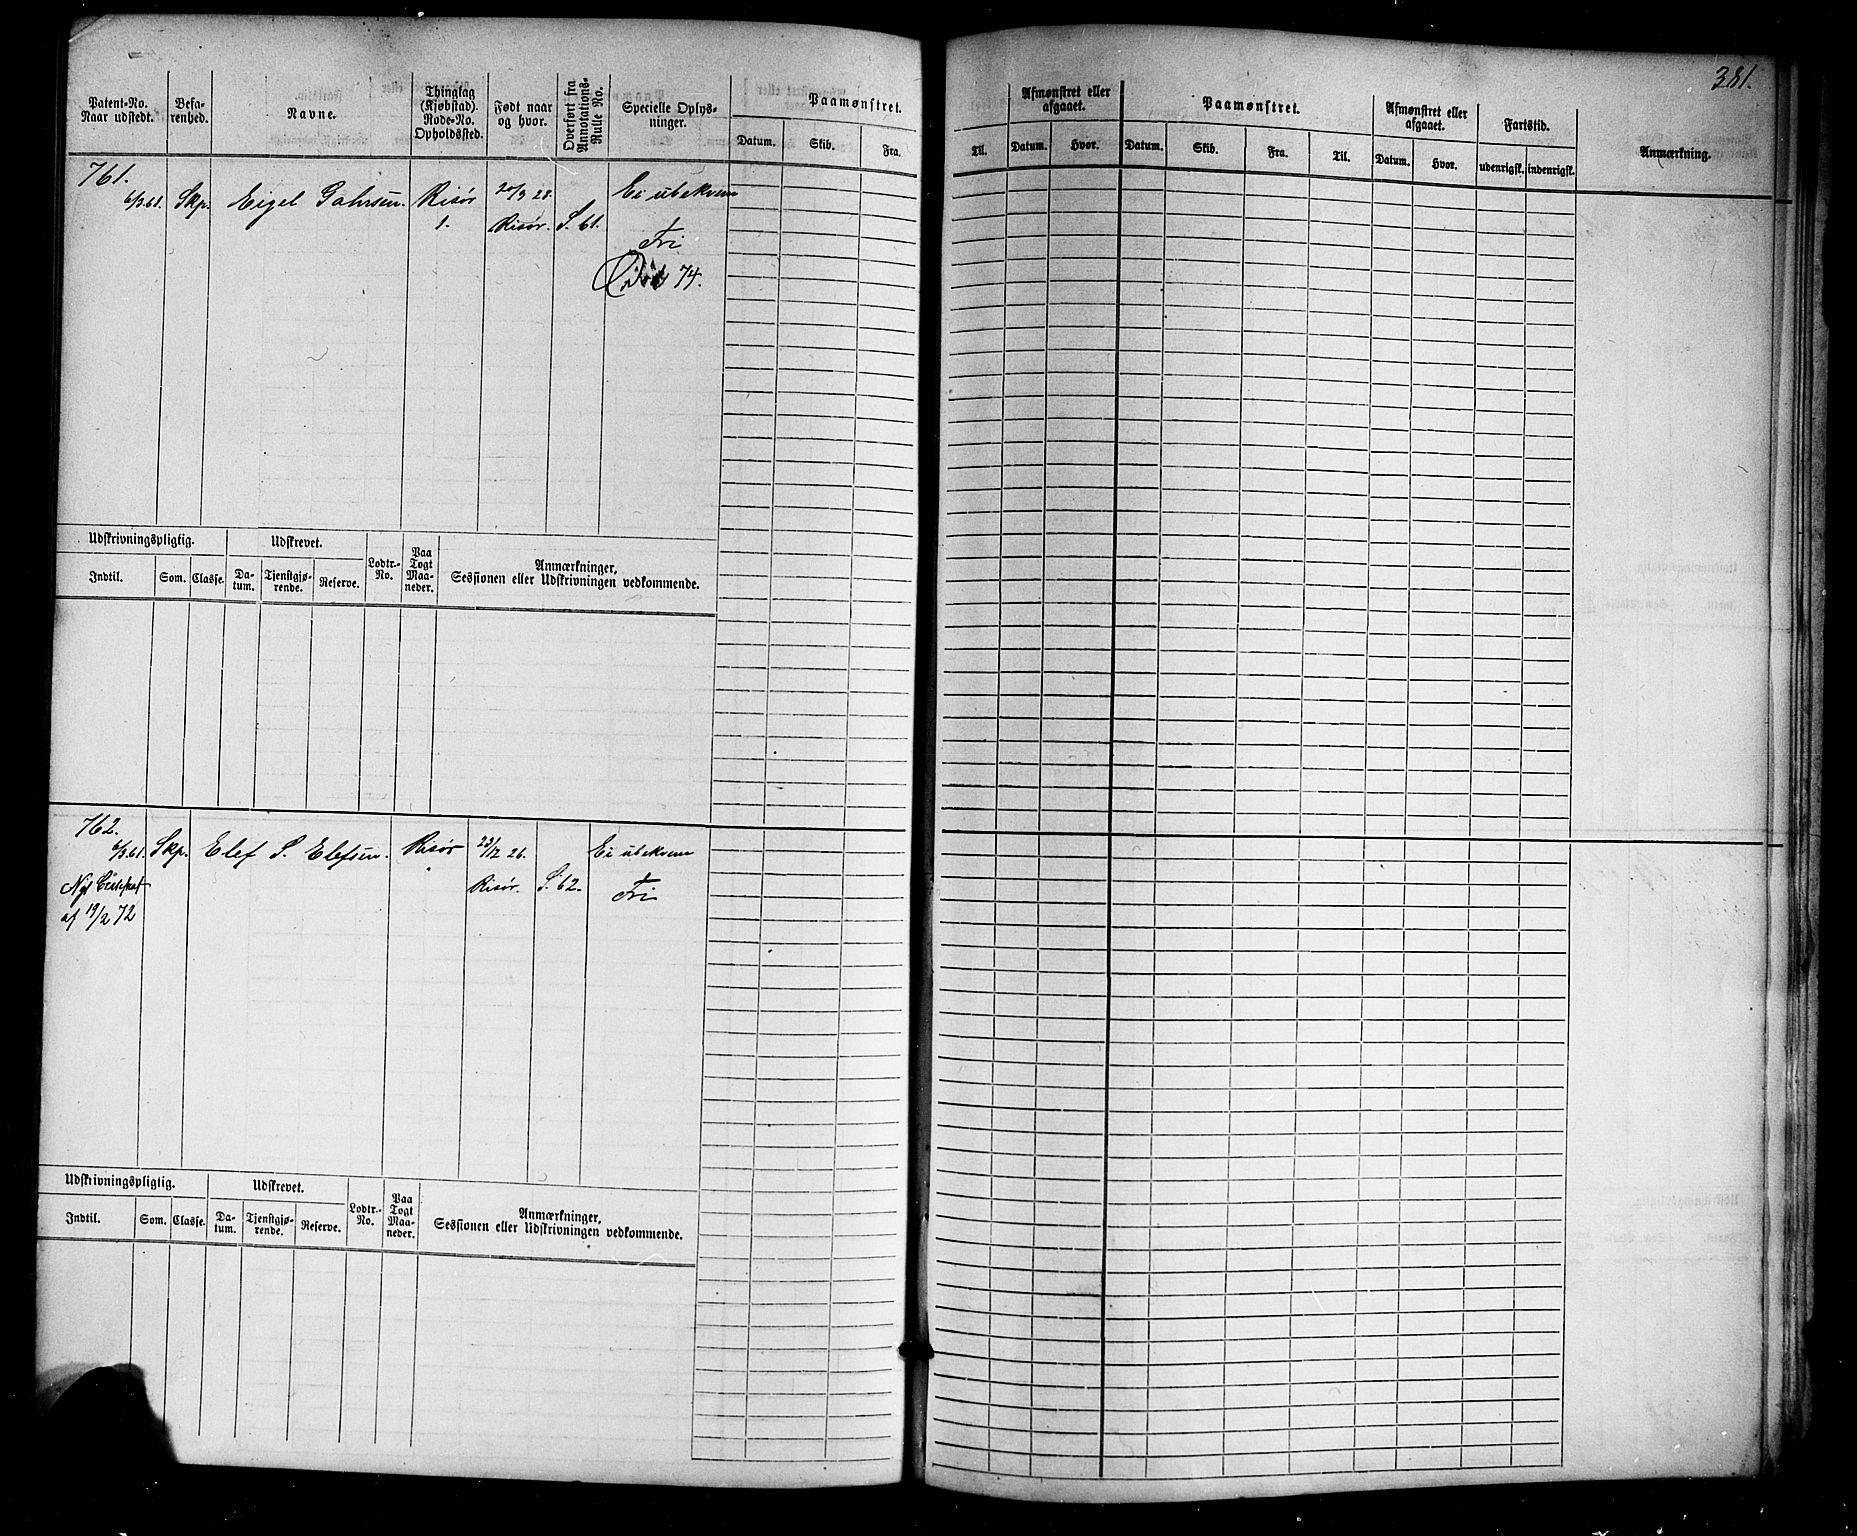 381.
Patent-No. Naar udstedt. Befarenhed. Navne. Thinglag (Kjøbstad). Rode-No. Opholdssted. Født naar og hvor. Overført fra Annotations-Rulle No. Specielle Oplysninger. Paamønstret. Datum. Skib. Fra.
Til. Afmønstret eller afgaaet. Datum. Hvor. Paamønstret. Datum. Skib. Fra. Til. Afmønstret eller afgaaet. Datum. Hvor. Fartstid. udenrigsk. indenrigsk. Anmærkning.
761.
6/3 61. Skp. Eigel Risør 20/3 28. Ei ubekvem
1. Risør. S. 61.
Fri
Død 74.
Udskrivningspligtig. Udskrevet. Lodtr.-No. Paa Togt Maaneder. Anmærkninger, Sessionen eller Udskrivningen vedkommende.
Indtil. Som. Classe. Datum. Tjenstgjørende. Reserve.
762.
6/3 61. Skp. Elef S. Elefsen. Risør 23/12 26. Ei ubekvem
Risør. S. 62. Fri
af 19/2 72
Udskrivningspligtig. Udskrevet. Lodtr.-No. Paa Togt Maaneder. Anmærkninger, Sessionen eller Udskrivningen vedkommende.
Indtil. Som. Classe. Datum. Tjenstgjørende. Reserve.